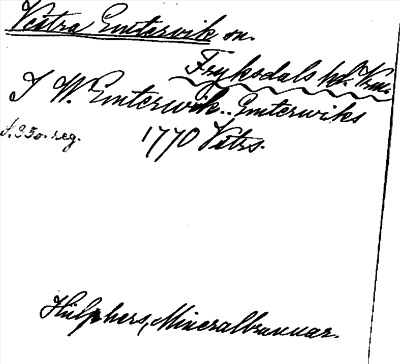 Västra Emtervik sn.
Fryksdals hd. Vrml.
I W. Emterwik.. Emterwiks
s. 350. reg. 1770 Vetrs.
Hülphers, Mineralbrunnar.